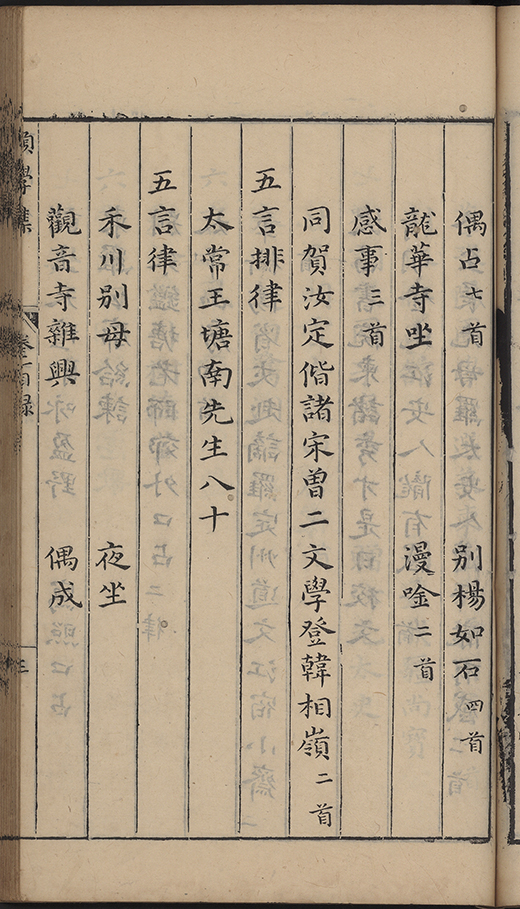 偶占七首　別楊如石四首
龍華寺坐　漫唫二首
感事三首
同賀汝定偕諸宋曾二文學登韓相嶺二首
五言排律
太常王塘南先生八十
五言律
禾川別母　夜坐
觀音寺雜興　偶成
學集　卷首　目錄